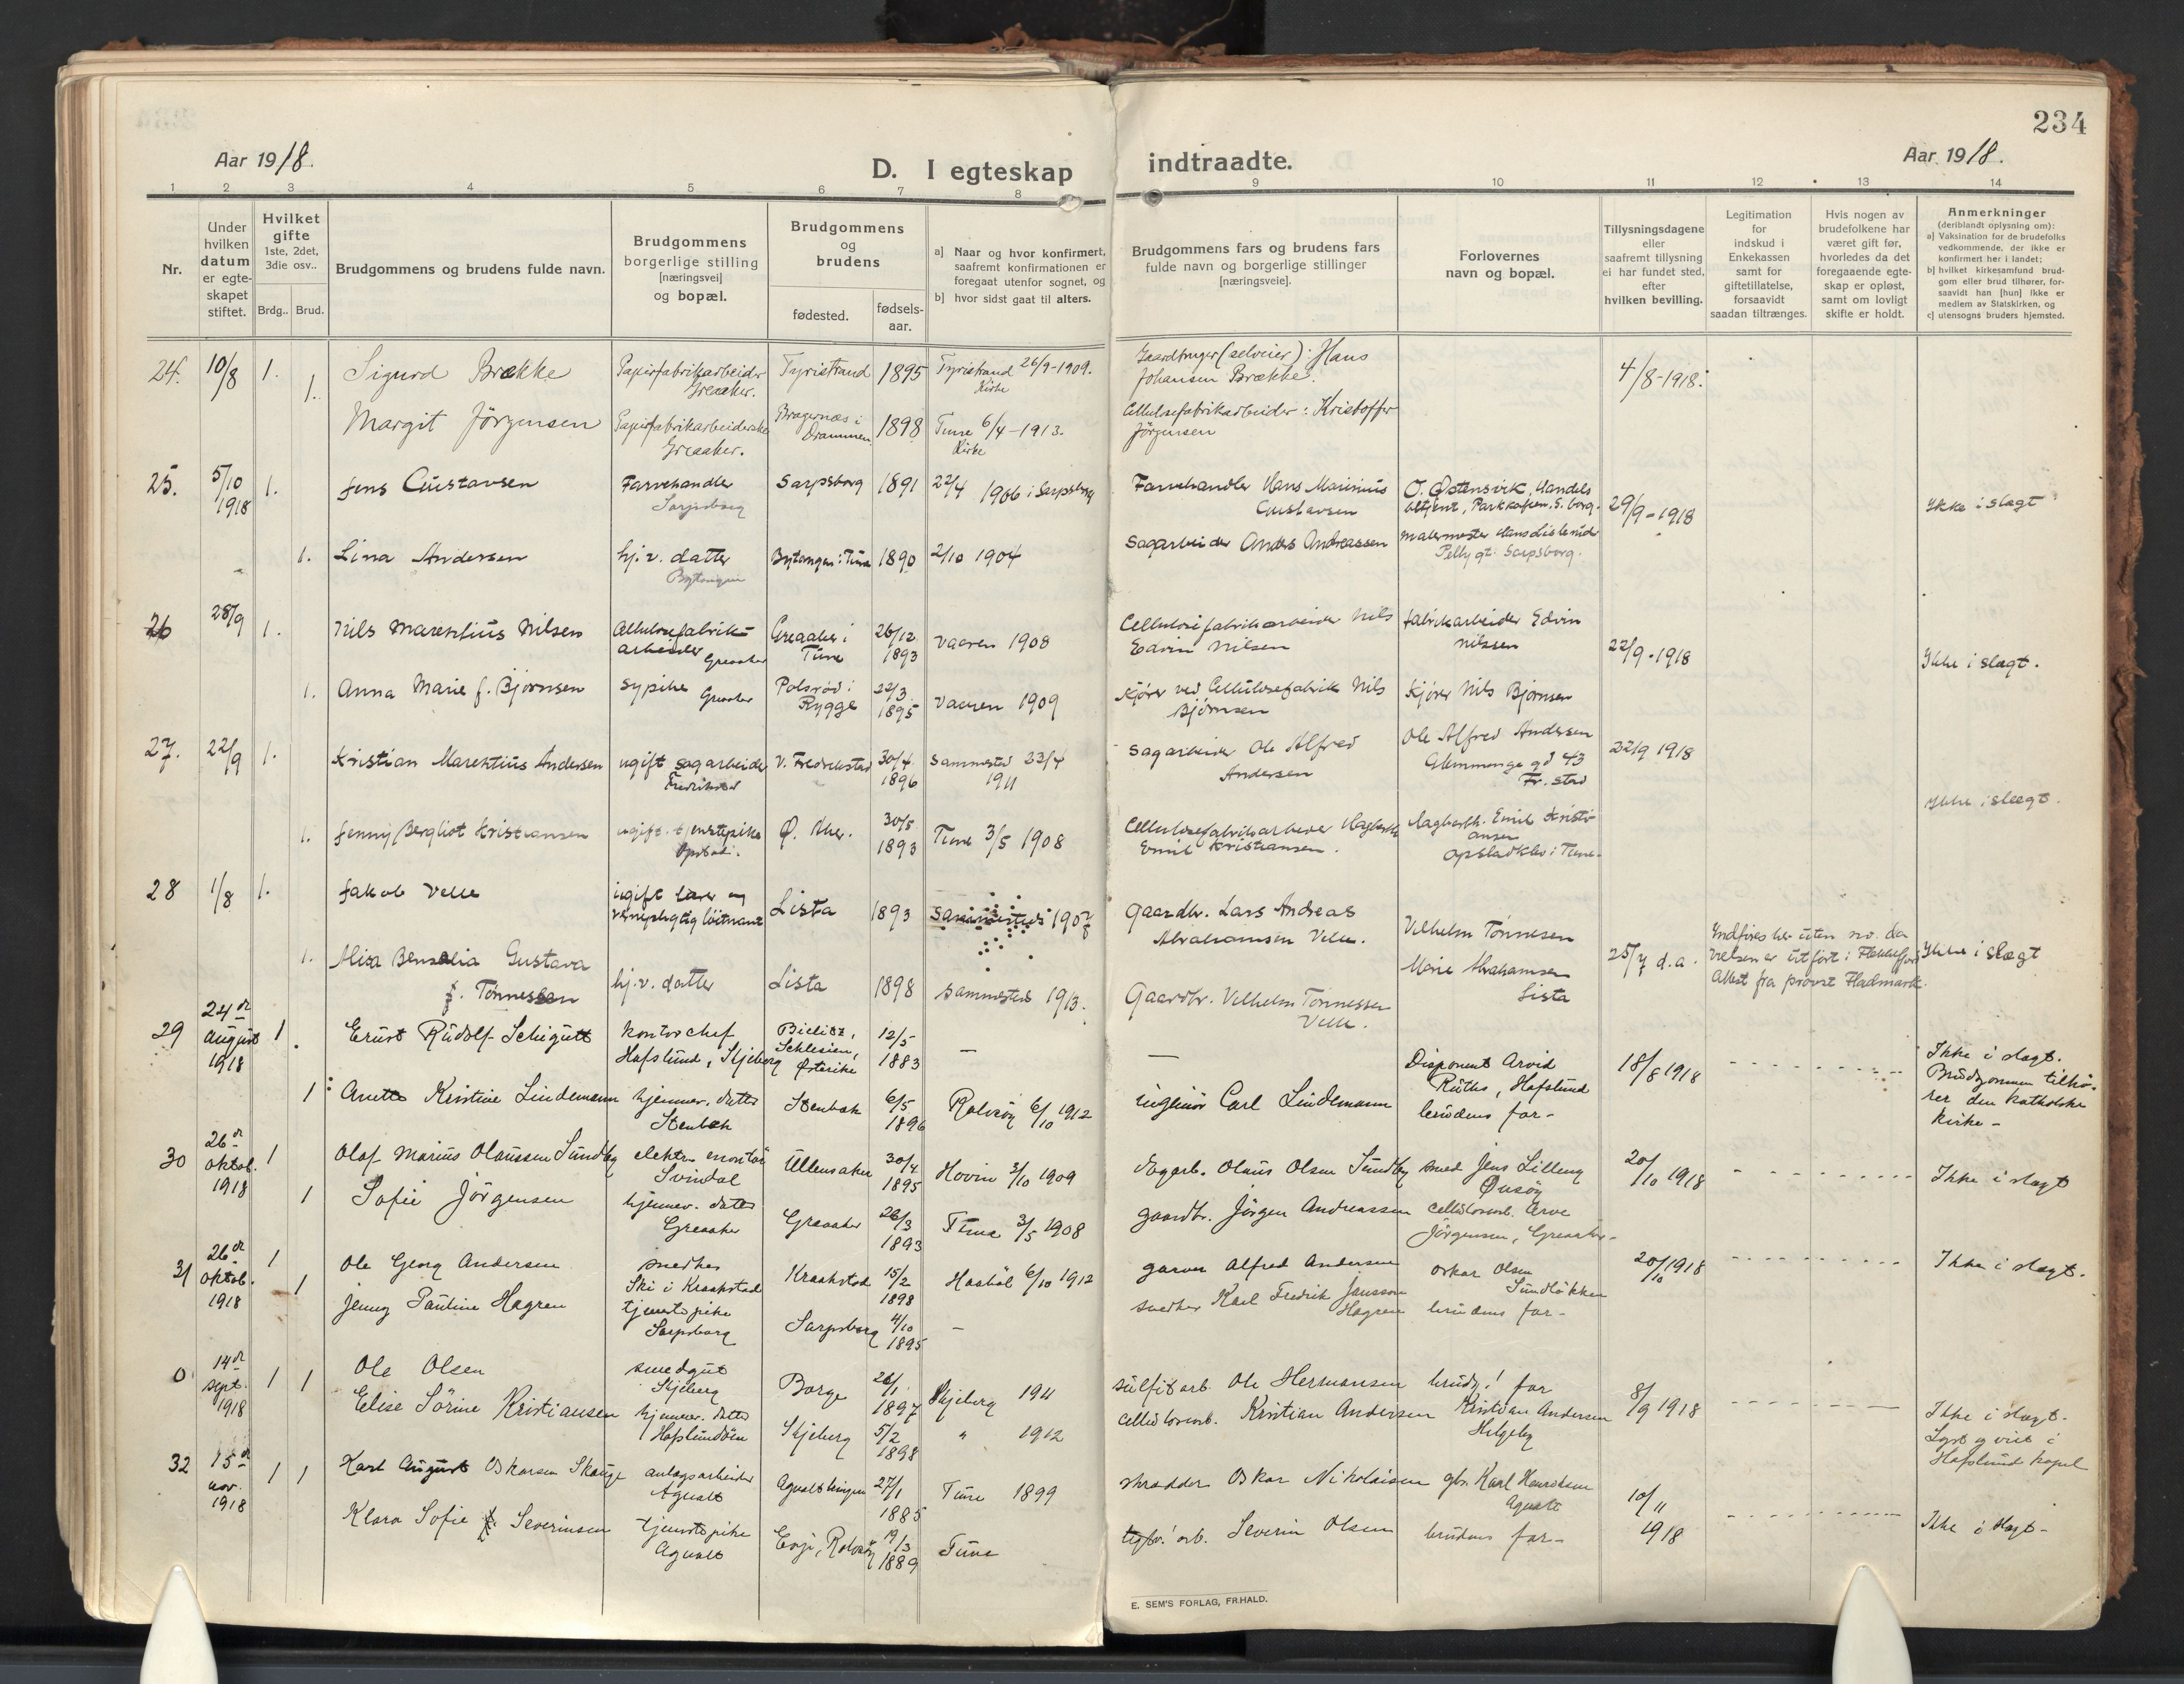 234
Aar 1918.
D. I egteskap indtraadte.
Aar 1918.
1 2 3 4 5 6 7 8 9 10 11 12 13 14
Nr.
Under hvilken datum er egteskapet stiftet.
Hvilket gifte 1ste, 2det, 3die osv..
Brdg.. Brud.
Brudgommens og brudens fulde navn.
Brudgommens borgerlige stilling [næringsvei] og bopæl.
Brudgommens og brudens
fødested.
fødsels-aar.
a] Naar og hvor konfirmert, saafremt konfirmationen er foregaat utenfor sognet, og
b] hvor sidst gaat til alters.
Brudgommens fars og brudens fars fulde navn og borgerlige stillinger [næringsveie].
Forlovernes navn og bopæl.
Tillysningsdagene eller saafremt tillysning ei har fundet sted, efter hvilken bevilling.
Legitimation for indskud i Enkekassen samt for giftetillatelse, forsaavidt saadan tiltrænges.
Hvis nogen av brudefolkene har været gift før, hvorledes da det foregaaende egteskap er opløst, samt om lovligt skifte er holdt.
Anmerkninger (deriblandt oplysning om):
a) Vaksination for de brudefolks vedkommende, der ikke er konfirmert her i landet;
b) hvilket kirkesamfund brudgom eller brud tilhører, forsaavidt han [hun] ikke er medlem av Statskirken, og
c) utensogns bruders hjemsted.
24. 10/8 1. Sigurd Brække Papirfabrikarbeider Greaaker. Tyristrand 1895 Tyristrand Kirke 26/9-1909. Gaardbruger (selveier): Hans Johansen Brække. 4/8-1918.
1. Margit Jörgensen Papirfabrikarbeiderske Greaaker. Bragernæs i Drammen 1898 Tune Kirke 6/4-1913. Cellulosefabrikarbeider: Kristoffer Jörgensen
25. 5/10 1918 1. Jens Gustavsen Farvehandler Sarpsborg Sarpsborg 1891 22/4 1906 i Sarpsborg Farvehandler Hans Marinius Gustavsen O. Østensvik, Handels betjent, Parkkafeen, S.borg. 29/9-1918 Ikke i slægt
1. Lina Andersen hj.v. datter Bytangen Bytangen i Tune 1890 2/10 1904 Sagarbeider Anders Andreassen Malermester Hans Pellygt. Sarpsborg.
26 28/9 1. Nils Marentius Nilsen Cellulosefabrikarbeider Greaaker Greaaker i Tune 26/12 1893 Vaaren 1908 Cellulosefabrikarbeider Nils Edvin Nilsen fabrikarbeider Edvin Nilssen 22/9-1918 Ikke i slægt.
1. Anna Marie f. Bjørnsen Sypike Greaaker Polsrød i Rygge 22/3 1895 Vaaren 1909 Kjører ved Cellulosefabrik Nils Bjørnsen Kjører Nils Bjørnsen
27. 22/9 1. Kristian Marentius Andersen ugift sagarbeider Fredrikstad V. Fredrikstad 30/4 1896 Sammested 23/4 1911 Sagarbeider Ole Alfred Andersen Ole Alfred Andersen Glemmenge gd 43 Fr.stad 22/9 1918 Ikke i slægt.
1. Jenny Bergliot Kristiansen ugift tjenstepike Opstad. Ø. Aker. 30/5 1893 Tune 3/5 1908 Cellulosefabrikarbeider Hagbarth Emil Kristiansen. Hagbarth. Emil Kristiansen Opstadklev i Tune
28 1/8 1. Jakob Velle ugift lærer og vernepligtig løitnant Lista 1893 sammesteds 1907 Gaardbr. Lars Andreas Abrahamsen Velle. Vilhelm Tönnesen Marie Abrahamsen Lista 25/7 d.a. Indføres her uten no. da vielsen er utført i Flekkefjord Attest fra provst Hadmark. Ikke i slægt
1. Alisa Gustava f. Tönnessen hj.v. datter Lista 1898 sammesteds 1913. Gaardbr. Vilhelm Tönnessen Velle.
29 24de august 1918 1 Ernst Rudolf Schigutt kontorchef Hafslund, Skjeberg Bielitz, Schlesien, Østerike 12/5 1883 — — Disponent Arvid Ruths, Hafslund 18/8 1918 Ikke i slægt. Brudgommen tilhører den katholske kirke –
1 Anette Kristine Lindemann hjemmev. datter Stenbæk Stenbæk 6/5 1896 Rolvsøy 6/10 1912 ingeniør Carl Lindemann brudens far –
30 26de oktob. 1918 1 Olaf Marius Olaussen Sundby elektr. montør Svindal Ullensaker 30/4 1895 Hovin 3/10 1909 Olaus Olsen Sundby smed Jens Lilleng Onsøy 20/10 1918 Ikke i slægt
1 Sofie Jörgensen hjemmev. datter Greaaker Greaaker 26/3 1893 Tune 3/5 1908 gaardbr. Jörgen Andreassen cellulosearb. Jörgensen, Greaaker –
31 26de oktob. 1918 1 Ole Georg Andersen snedker Ski i Kraakstad Kraakstad 15/2 1898 Haabøl 6/10 1912 garver Alfred Andersen Oskar Olsen Sundløkken 20/10 1918 Ikke i slægt.
1 Jenny Pauline Hagren tjenstepike Sarpsborg Sarpsborg 4/10 1895 – snedker Karl Fredrik Jansson Hagren brudens far –
0 14de sept. 1918 1 1 Ole Olsen smedgut Skjeberg Borge 26/1 1897 Skjeberg 1911 sulfitarb. Ole Hermansen brudg! far 8/9 1918 Ikke i slægt.
Elise Sörine Kristiansen hjemmev. datter Hafslundöen Skjeberg 5/2 1898 " 1912 cellulosearb. Kristian Andersen Kristian Andersen Helgeby Lyst og viet i Hafslund kapel
32 15de nov. 1918 1 1 Karl August Oskarsen Skauge anlægsarbeider Agnalt 27/1 1885 Tune 1899 skrædder Oskar Nikolaisen gbr. Karl Agnalt 10/11 1918 Ikke i slægt –
Klara Sofie f. Severinsen tjenstepike Agnalt Evje, Rolvsøy 19/3 1889 Tune arb. Severin Olsen brudens far –
E. SEM'S FORLAG, FR.HALD.